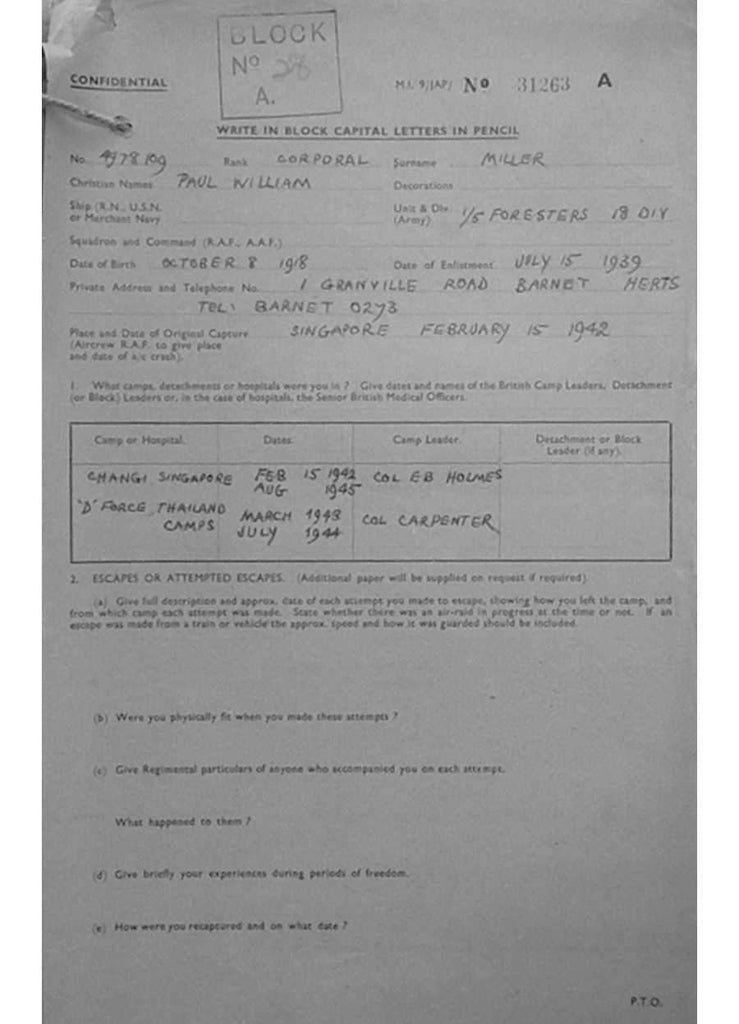 BLOCK
Nº 28
A.
CONFIDENTIAL
M.I. 9/JAP/ Nº 31263 A
WRITE IN BLOCK CAPITAL LETTERS IN PENCIL
No. Rank CORPORAL Surname MILLER
Christian Names PAUL WILLIAM Decorations
Ship (R.N., U.S.N. or Merchant Navy Unit & Div. (Army) 1/5 FORESTERS 18 DIV
Squadron and Command (R.A.F., A.A.F.)
Date of Birth OCTOBER 8 1918 Date of Enlistment JULY 15 1939
Private Address and Telephone No. 1 GRANVILLE ROAD BARNET HERTS
TEL: BARNET 0243
Place and Date of Original Capture SINGAPORE FEBRUARY 15 1942
(Aircrew R.A.F. to give place
and date of a/c crash).
1. What camps, detachments or hospitals were you in? Give dates and names of the British Camp Leaders, Detachment
(or Block) Leaders or, in the case of hospitals, the Senior British Medical Officers.
Camp or Hospital. Dates. Camp Leader. Detachment or Block
Leader (if any).
CHANGI SINGAPORE FEB 15 1942 COL EB HOLMES
AUG 1945
"D" FORCE THAILAND MARCH 1943 COL CARPENTER
CAMPS JULY 1944
2. ESCAPES OR ATTEMPTED ESCAPES. (Additional paper will be supplied on request if required).
(a) Give full description and approx. date of each attempt you made to escape, showing how you left the camp, and
from which camp each attempt was made. State whether there was an air-raid in progress at the time or not. If an
escape was made from a train or vehicle the approx. speed and how it was guarded should be included.
(b) Were you physically fit when you made these attempts?
(c) Give Regimental particulars of anyone who accompanied you on each attempt.
What happened to them?
(d) Give briefly your experiences during periods of freedom.
(e) How were you recaptured and on what date?
P.T.O.